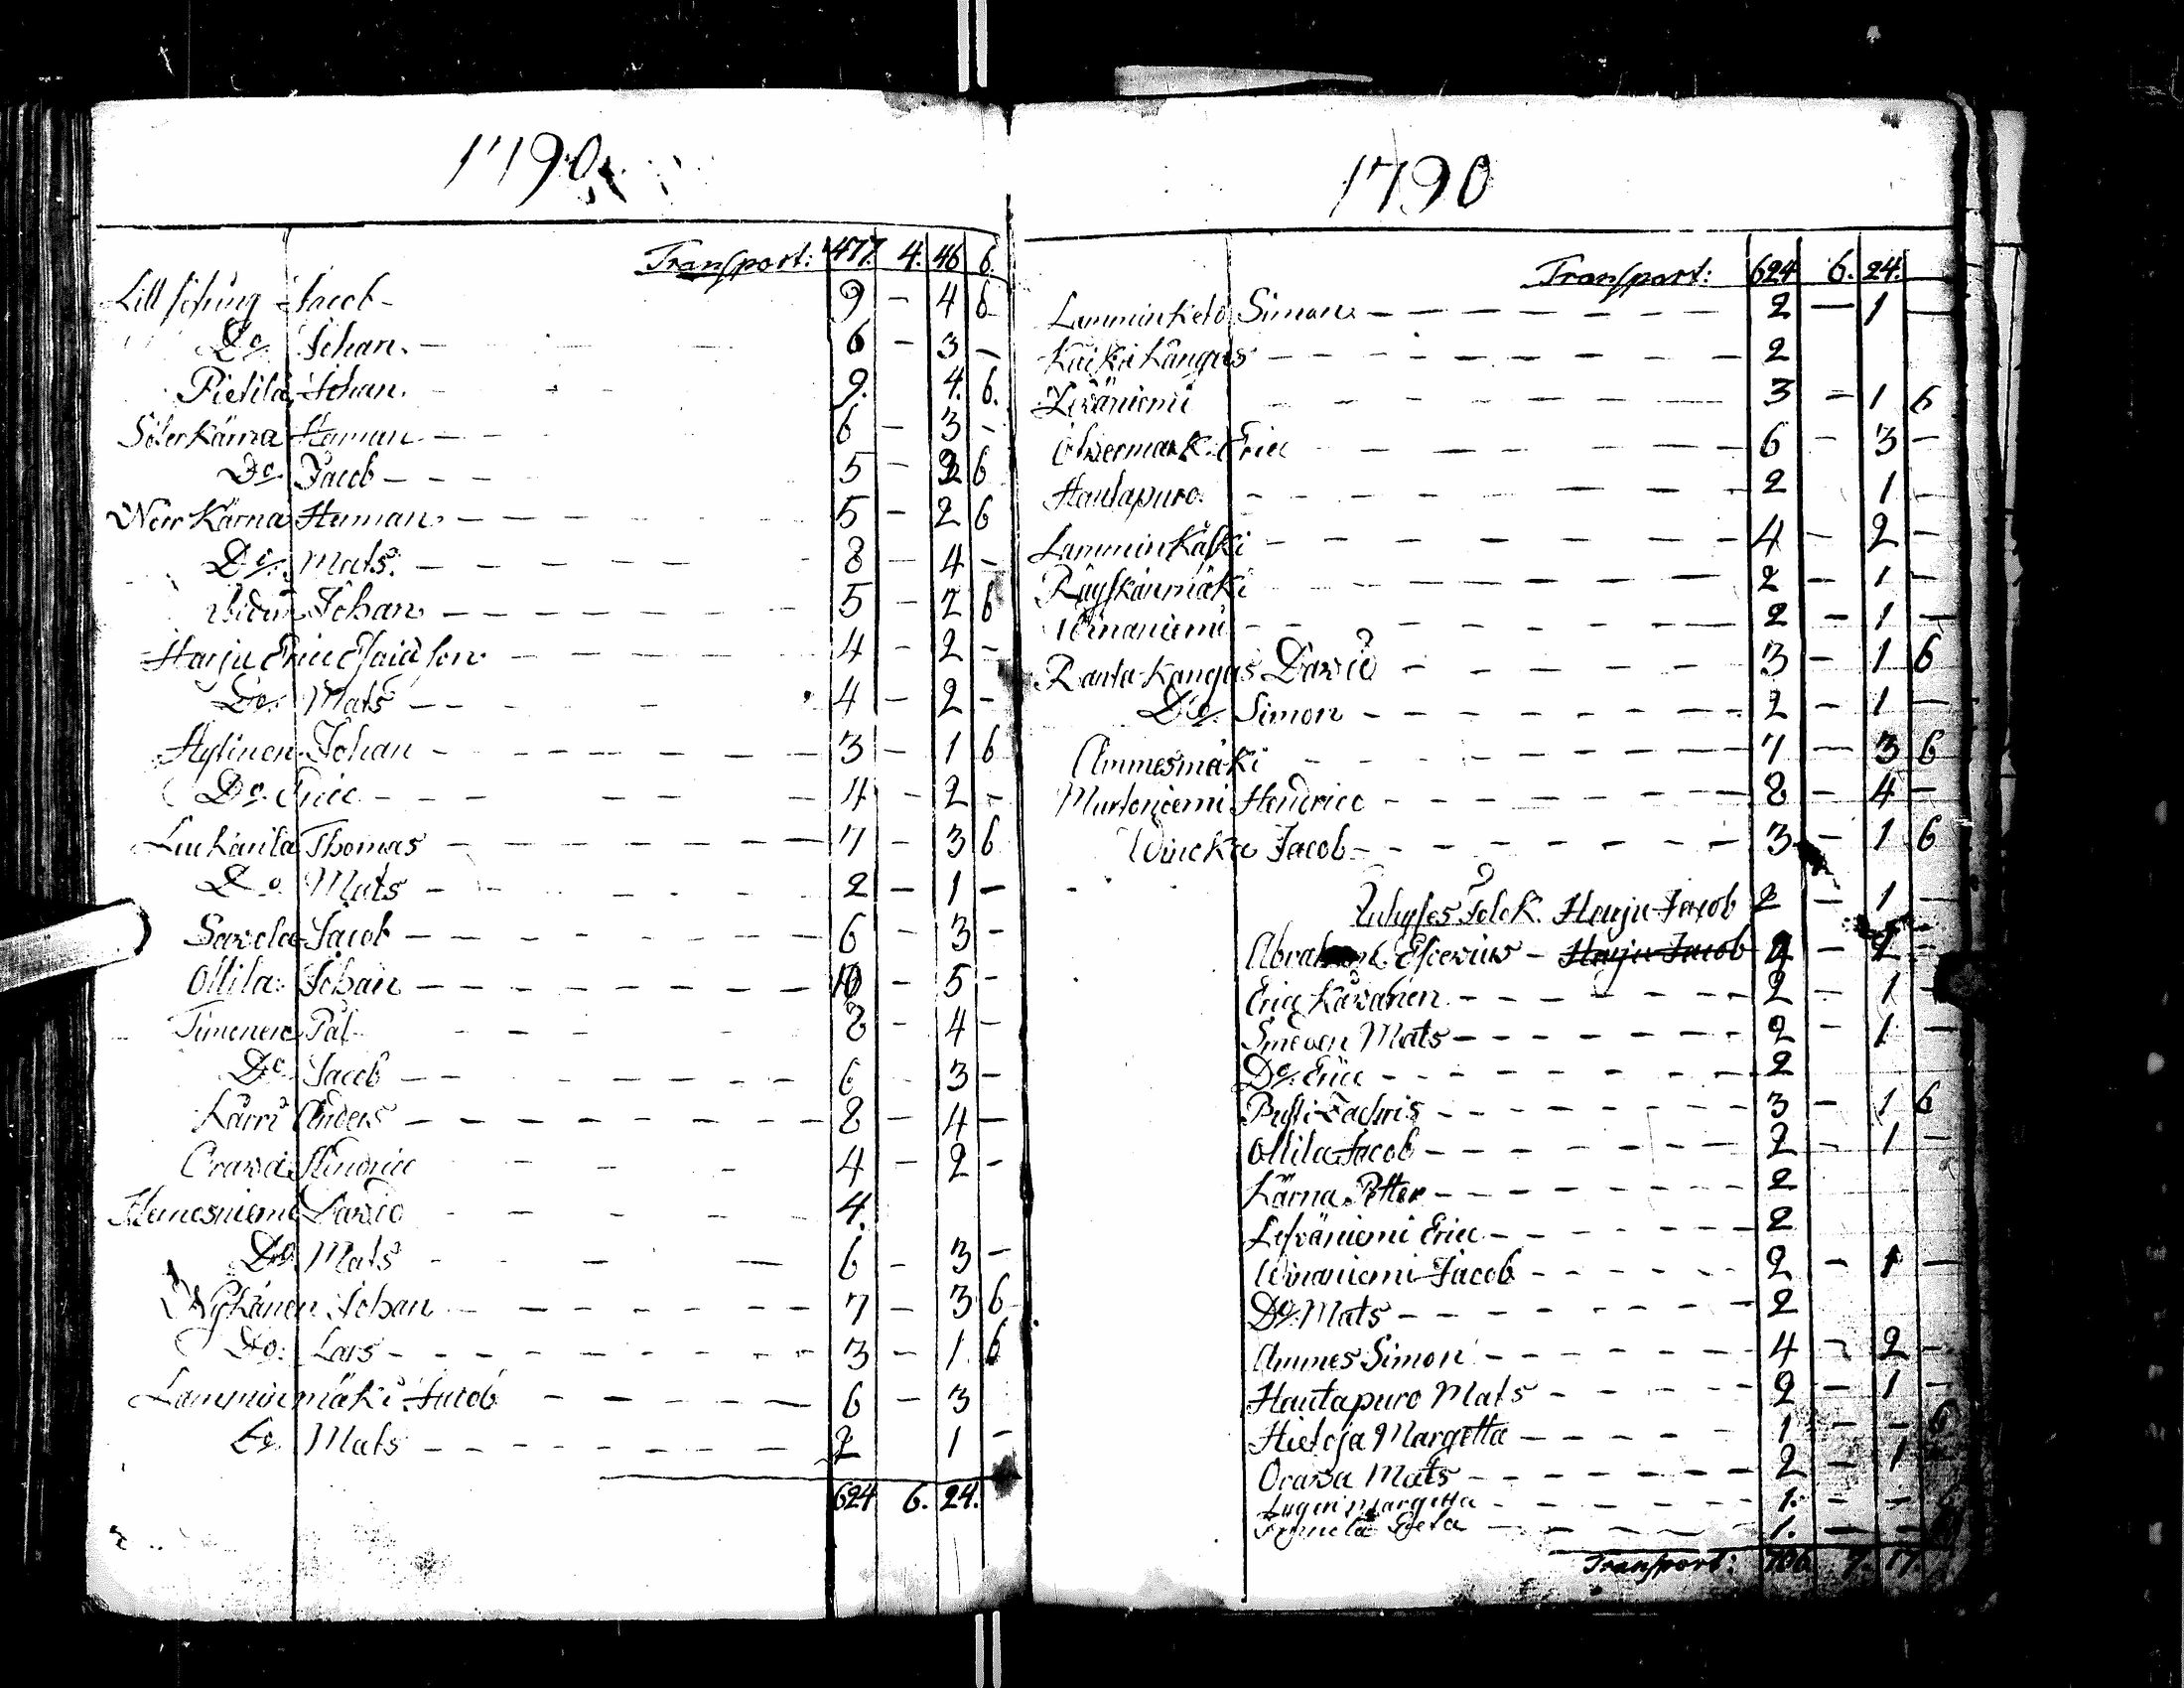 1790
Transport: 477. 4. 46 6.
Lill Jofung Jacob - 9 - 4 6
Do. Johan. - 6 - 3 -
Pietilä Johan. 9. 4. 6.
Söderkärna Herman - 6 - 3 -
Do. Jacob - - - 5 - 2 6
Nerr Kärna Herman. - - - 5 - 2 6
Do. Mats. - - - 8 - 4 -
Johan - - - 5 - 2 6
Harju Eric Esaiæ son - - - 4 - 2 -
Do. Mats - - - 4 - 2 -
Hytinen Johan - - - 3 - 1 6
Do. Eric - - - 4 - 2 -
Luckanila Thomas - - - 7 - 3 6
Do. Mats - - - 2 - 1 -
Savela Jacob - - - 6 - 3 -
Ollila Johan - - - 10 - 5 -
Timonen Pål - - - 8 - 4 -
Do. Jacob - - - 6 3 -
Kärri Anders - - - 8 - 4 -
Orava Hendric - - - 4 - 2 -
Hemesniemi David - - - 4.
Do. Mats - - - 6 - 3 -
Nykänen Johan - - - 7 - 3 6
Do. Lars - - - 3 - 1 6
Lamminmäki Jacob - - - 6 - 3
Do. Mats - - - 2 1 -
624 6. 24.
1790
Transport: 624 6. 24. -
Lamminketo Simon - - - 2 - 1 -
Kaikukangas - - - 2
Leväniemi - - - 3 - 1 6
Öfvermark Eric - - - 6 - 3 -
Hautapuro - - - 2 1 -
Lamminkåski - - - 4 - 2 -
Räyskänmäki - - - 2 - 1 -
Winaniemi - - - 2 - 1 -
Ranta-kangas David - - - 3 - 1 6
Do. Simon - - - 2 - 1 -
Ammesmäki - - - 7 - 3 6
Murtoniemi Hendric - - - 8 - 4 -
Wincka Jacob - - - 3 - 1 6
Inhyses Folck. Harju Jacob 2 - 1 -
Abraham Escevius - Harju Jacob 2 - 1 -
Eric Kåvanen - - - 2 - 1 -
Smeden Mats - - - 2 - 1 -
Do. Eric - - - 2
Pysti Zachris - - - 3 - 1 6
Ollila Jacob - - - 2 - 1 -
Kärna Petter - - - 2
Lefväniemi Eric - - - 2
Winaniemi Jacob - - - 2 - 1 -
Do. Mats - - - 2
Ammes Simon - - - 4 - 2 -
Hautapuro Mats - - - 2 - 1 -
Hietoja Margetta - - - 1 - - 6
Orava Mats - - - 2 - 1
Margetta - - - 1. - -
Greta - - - 1. - -
Transport: 706 7. 17.